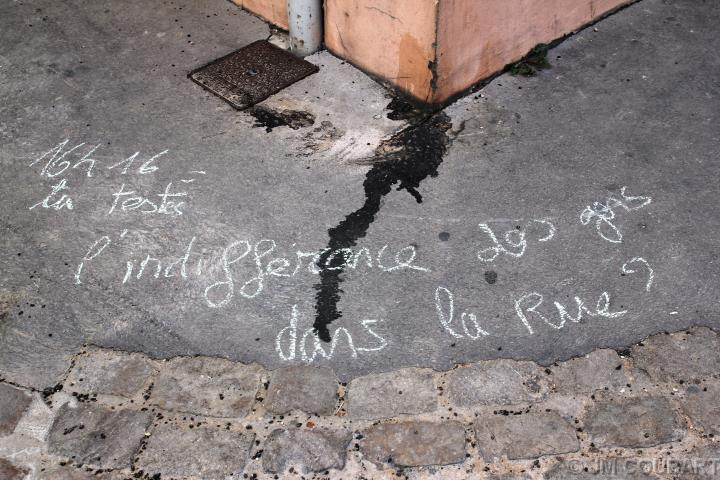 16h16 -
tu testes
l'indifférance des gens
dans la Rue ?
© JM COUPART